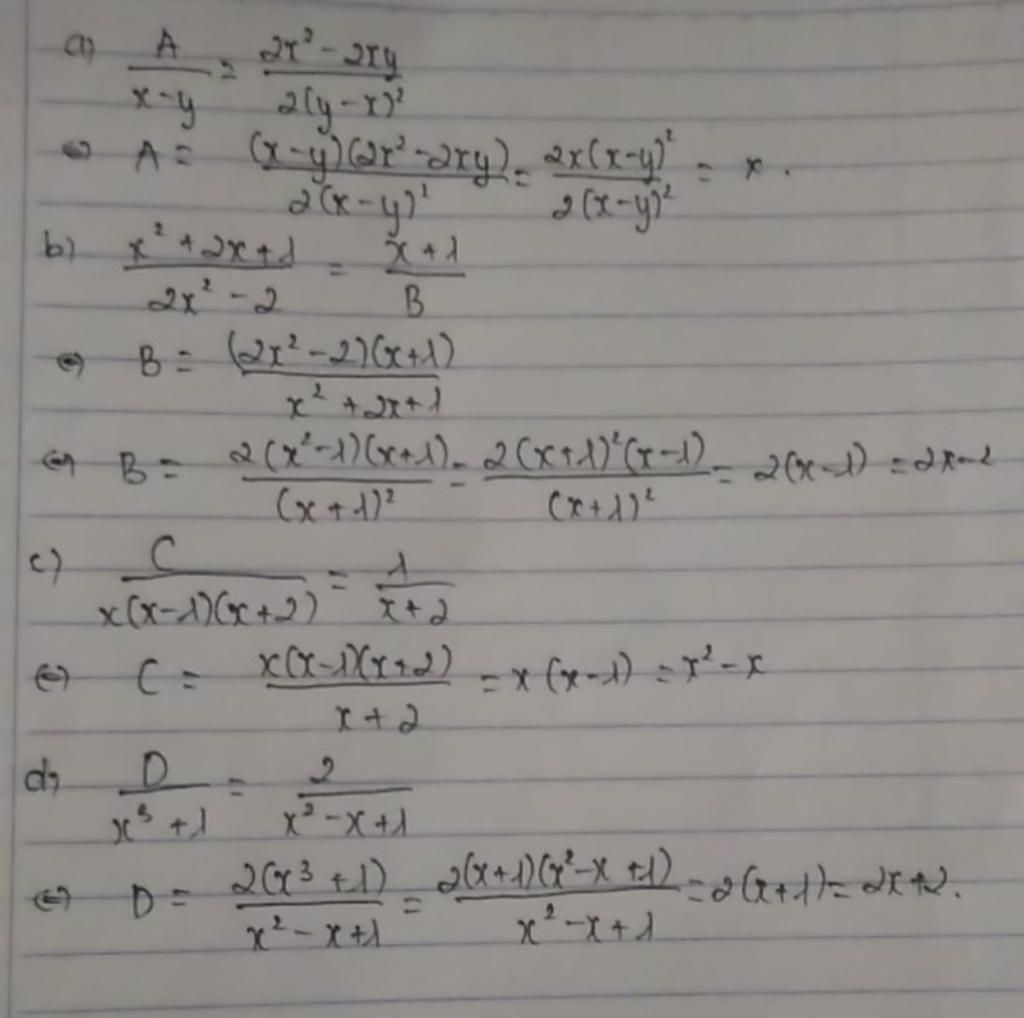 a) A/(x-y) = (2x² - 2xy)/(2(y-x)²)
⇔ A = ((x-y)(2x² - 2xy))/(2(x-y)²) = (2x(x-y)²)/(2(x-y)²) = x.
b) (x² + 2x + 1)/(2x² - 2) = (x+1)/B
⇔ B = ((2x² - 2)(x+1))/(x² + 2x + 1)
⇔ B = (2(x² - 1)(x+1))/((x+1)²) = (2(x+1)²(x-1))/((x+1)²) = 2(x-1) = 2x-2
c) C/(x(x-1)(x+2)) = 1/(x+2)
⇔ C = (x(x-1)(x+2))/(x+2) = x(x-1) = x² - x
d) D/(x³ + 1) = 2/(x² - x + 1)
⇔ D = (2(x³ + 1))/(x² - x + 1) = (2(x+1)(x² - x + 1))/(x² - x + 1) = 2(x+1) = 2x+2.